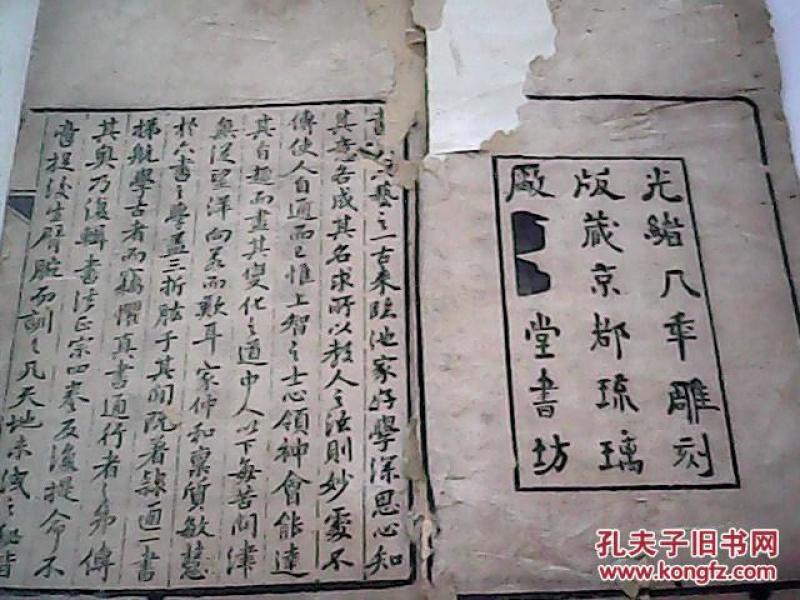 光緒八年雕刻
版藏京都琉璃
廠堂書坊
書六藝之一古來臨池家好學深思心知
其意各成其名求所以教人之法則妙處不
傳使人自通而已惟上智之士心領神會能達
其自趣而盡其變化之道中人以下每苦問津
無從望洋向若而歎耳家仲和稟質敏慧
於六書之學蓋三折肱于其間既著隸通一書
梯航學古者而竊懼真書通行者之弗傳
其奥乃復輯書法正宗四卷反復提命不
啻捉後生臂腕而訓之凡天地未洩之秘皆
孔夫子旧书网
www.kongfz.com